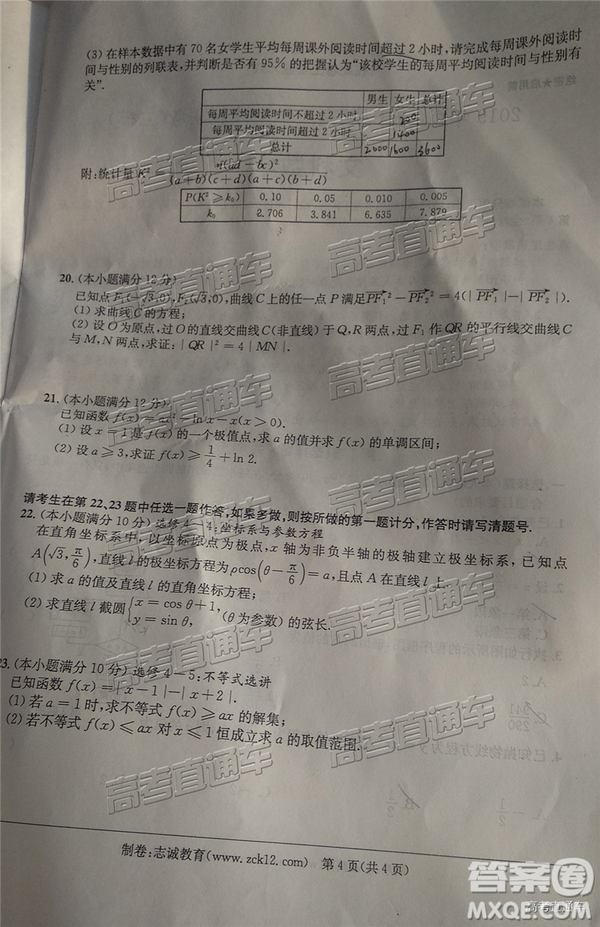 (3) 在样本数据中有 70 名女学生平均每周课外阅读时间超过 2 小时,请完成每周课外阅读时
间与性别的列联表,并判断是否有 95% 的把握认为“该校学生的每周平均阅读时间与性别有
关”.
男生 女生 总计
每周平均阅读时间不超过 2 小时
每周平均阅读时间超过 2 小时 1400
总计 2000 1600 3600
附:统计量 K² = n(ad-bc)² / (a+b)(c+d)(a+c)(b+d)
P(K²≥k₀) 0.10 0.05 0.010 0.005
k₀ 2.706 3.841 6.635 7.879
20. (本小题满分 12 分)
已知点 F₁(-√3,0),F₂(√3,0),曲线 C 上的任一点 P 满足 PF₁² - PF₂² = 4(|PF₁| - |PF₂|).
(1) 求曲线 C 的方程;
(2) 设 O 为原点,过 O 的直线交曲线 C(非直线)于 Q,R 两点,过 F₁ 作 QR 的平行线交曲线 C
与 M,N 两点,求证:|QR|²=4|MN|.
21. (本小题满分 12 分)
已知函数 f(x)=ax²-ln x-x(x>0).
(1) 设 x=1 是 f(x) 的一个极值点,求 a 的值并求 f(x) 的单调区间;
(2) 设 a≥3,求证 f(x)≥1/4+ln 2.
请考生在第 22、23 题中任选一题作答,如果多做,则按所做的第一题计分,作答时请写清题号.
22. (本小题满分 10 分) 选修 4-4:坐标系与参数方程
在直角坐标系中,以坐标原点为极点,x 轴为非负半轴的极轴建立极坐标系,已知点
A(√3,π/6),直线 l 的极坐标方程为 ρcos(θ-π/6)=a,且点 A 在直线 l 上.
(1) 求 a 的值及直线 l 的直角坐标方程;
(2) 求直线 l 截圆 {x=cos θ+1, y=sin θ, (θ 为参数) 的弦长.
23. (本小题满分 10 分) 选修 4-5:不等式选讲
已知函数 f(x)=|x-1|-|x+2|.
(1) 若 a=1 时,求不等式 f(x)≥ax 的解集;
(2) 若不等式 f(x)≤ax 对 x≤1 恒成立求 a 的取值范围.
制卷:志诚教育(www.zck12.com) 第 4 页(共 4 页)
高考直通车
答案圈
MXQE.COM